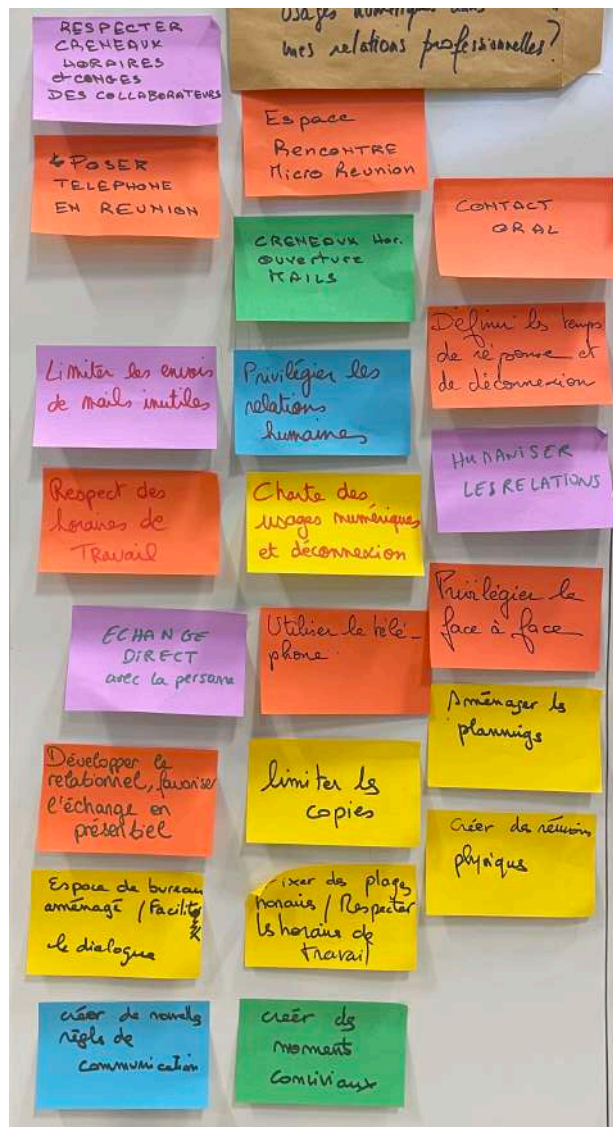 usages numériques dans
mes relations professionnelles?
RESPECTER
CRENEAUX
HORAIRES
et CONGES
DES COLLABORATEURS
POSER
TELEPHONE
EN REUNION
Limiter les envois
de mails inutiles
Respect des
horaires de
TRavail
ECHANGE
DIRECT
avec la personne
Développer le
relationnel, favoriser
l'échange en
présentiel
Espace de bureau
aménagé / Faciliter
le dialogue
créer de nouvelles
règles de
communication
Espace
RENCONTRE
Micro Reunion
CRENEAUX Hor.
ouverture
MAILS
Privilégier les
relations
humaines
Charte des
usages numériques
et déconnexion
Utiliser le télé-
phone.
limiter les
copies
ixer des plages
horaires / Respecter
les horaires de
travail
créer des
moments
conviviaux
CONTACT
ORAL
Définir les temps
de réponse et
de déconnexion
HUMANISER
LES RELATIONS
Privilégier le
face à face
Aménager les
plannings
Créer des réunions
physiques